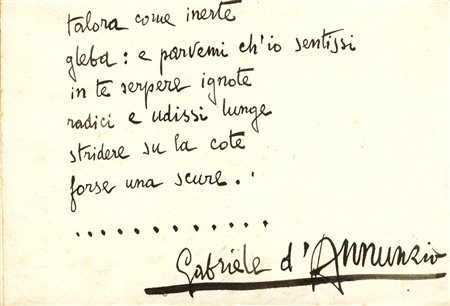 talora come inerte
gleba : e parvemi ch'io sentissi
in te serpere ignote
radici e udissi lunge
stridere su la cote
forse una scure .
. . . . . . . . . . . .
Gabriele d'Annunzio